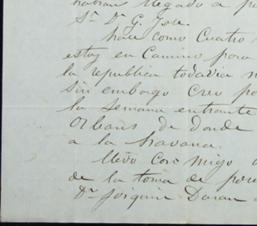 habian llegado a
Sr. Dn G.
hace como Cuatro
estoy en Camino para
la republica todavia
Sin embargo Creo po
la Semana entrante
Orleans de donde
a la havana.
llevo con migo
de la toma de
Dn Joaquin Duran